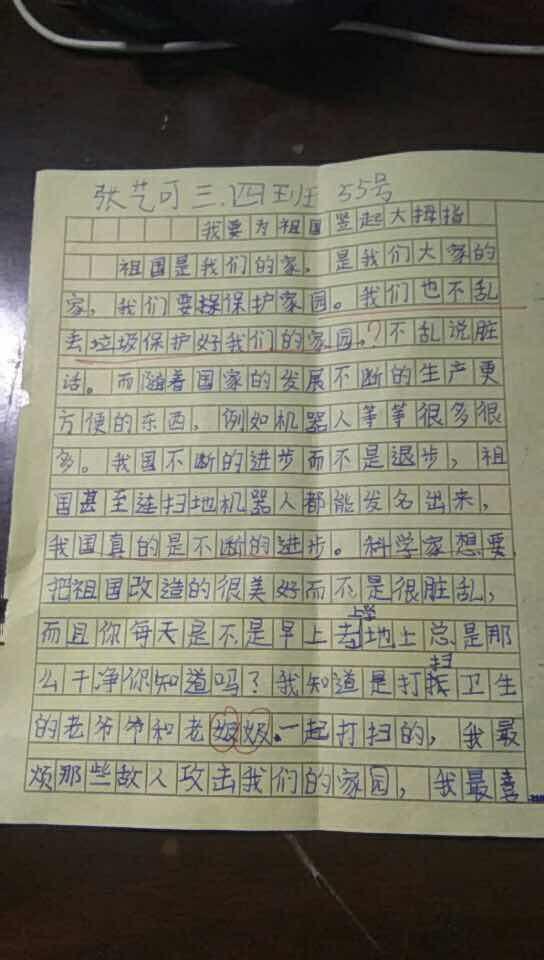 张艺可三.四班 55号
我要为祖国竖起大拇指
祖国是我们的家，是我们大家的
家，我们要保护家园。我们也不乱
丢垃圾保护好我们的家园。？不乱说脏
话。而随着国家的发展不断的生产更
方便的东西，例如机器人等等很多很
多。我国不断的进步而不是退步，祖
国甚至连扫地机器人都能发名出来，
我国真的是不断的进步。科学家想要
把祖国改造的很美好而不是很脏乱，
上学
而且你每天是不是早上 地上总是那
扫
么干净你知道吗？我知道是打 卫生
的老爷爷和老奶奶一起打扫的，我最
烦那些敌人攻击我们的家园，我最喜